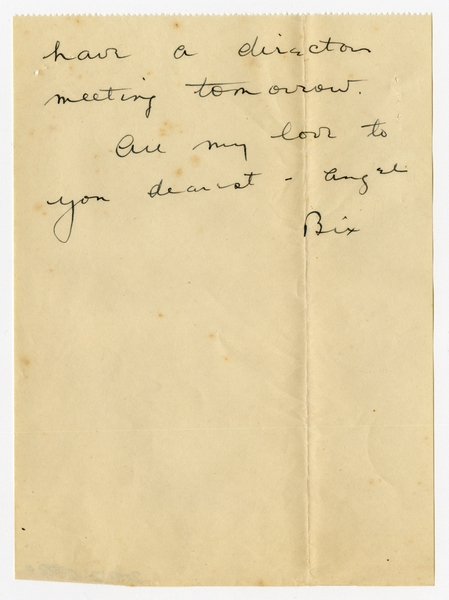 have a director
meeting tomorrow.
All my love to
you dearest - angel
Bix